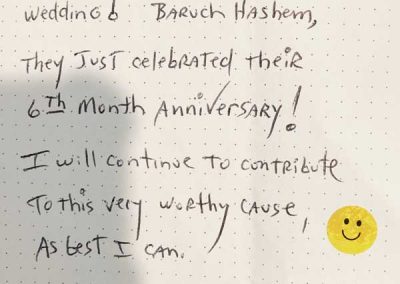 wedding! Baruch Hashem,
They Just celebrated their
6th Month Anniversary!
I will continue to contribute
To this very worthy cause,
As best I can.